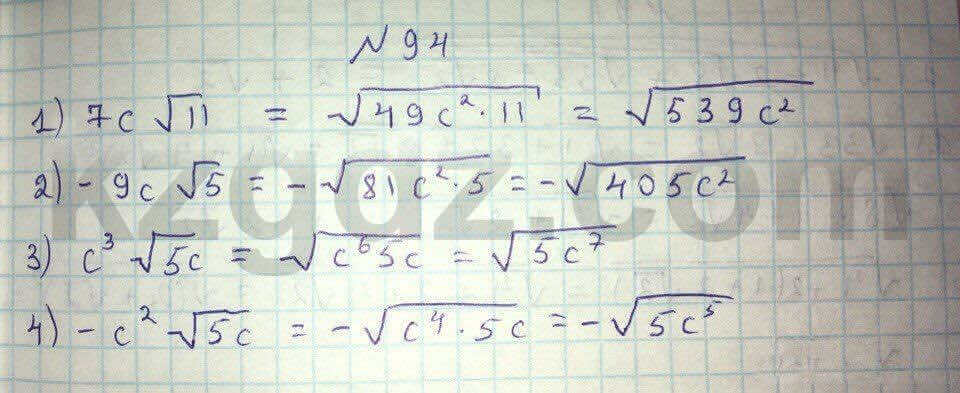 N 94
1) 7c √11 = √49c²·11 = √539c²
2) - 9c √5 = -√81c²·5 = -√405c²
3) c³ √5c = √c⁶5c = √5c⁷
4) -c² √5c = -√c⁴·5c = -√5c⁵
kzgdz.com